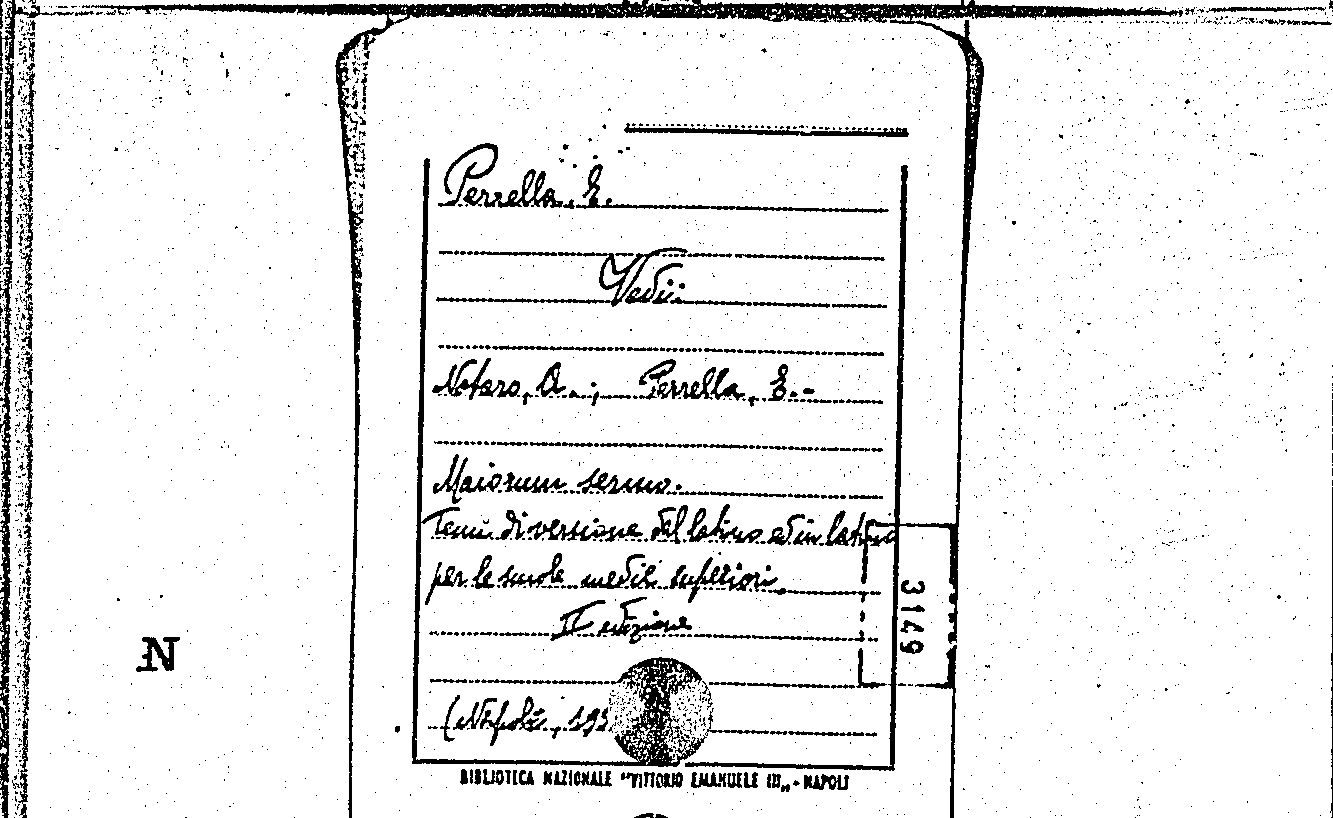 Perrella, E.
Vedi:
Notaro, A.; Perrella, E.-
Maiorum sermo.
Temi di versione dal latino ed in latino
per le scuole medie superiori.
II edizione
(Napoli, 195
3149
N
BIBLIOTECA NAZIONALE "VITTORIO EMANUELE III„ - NAPOLI